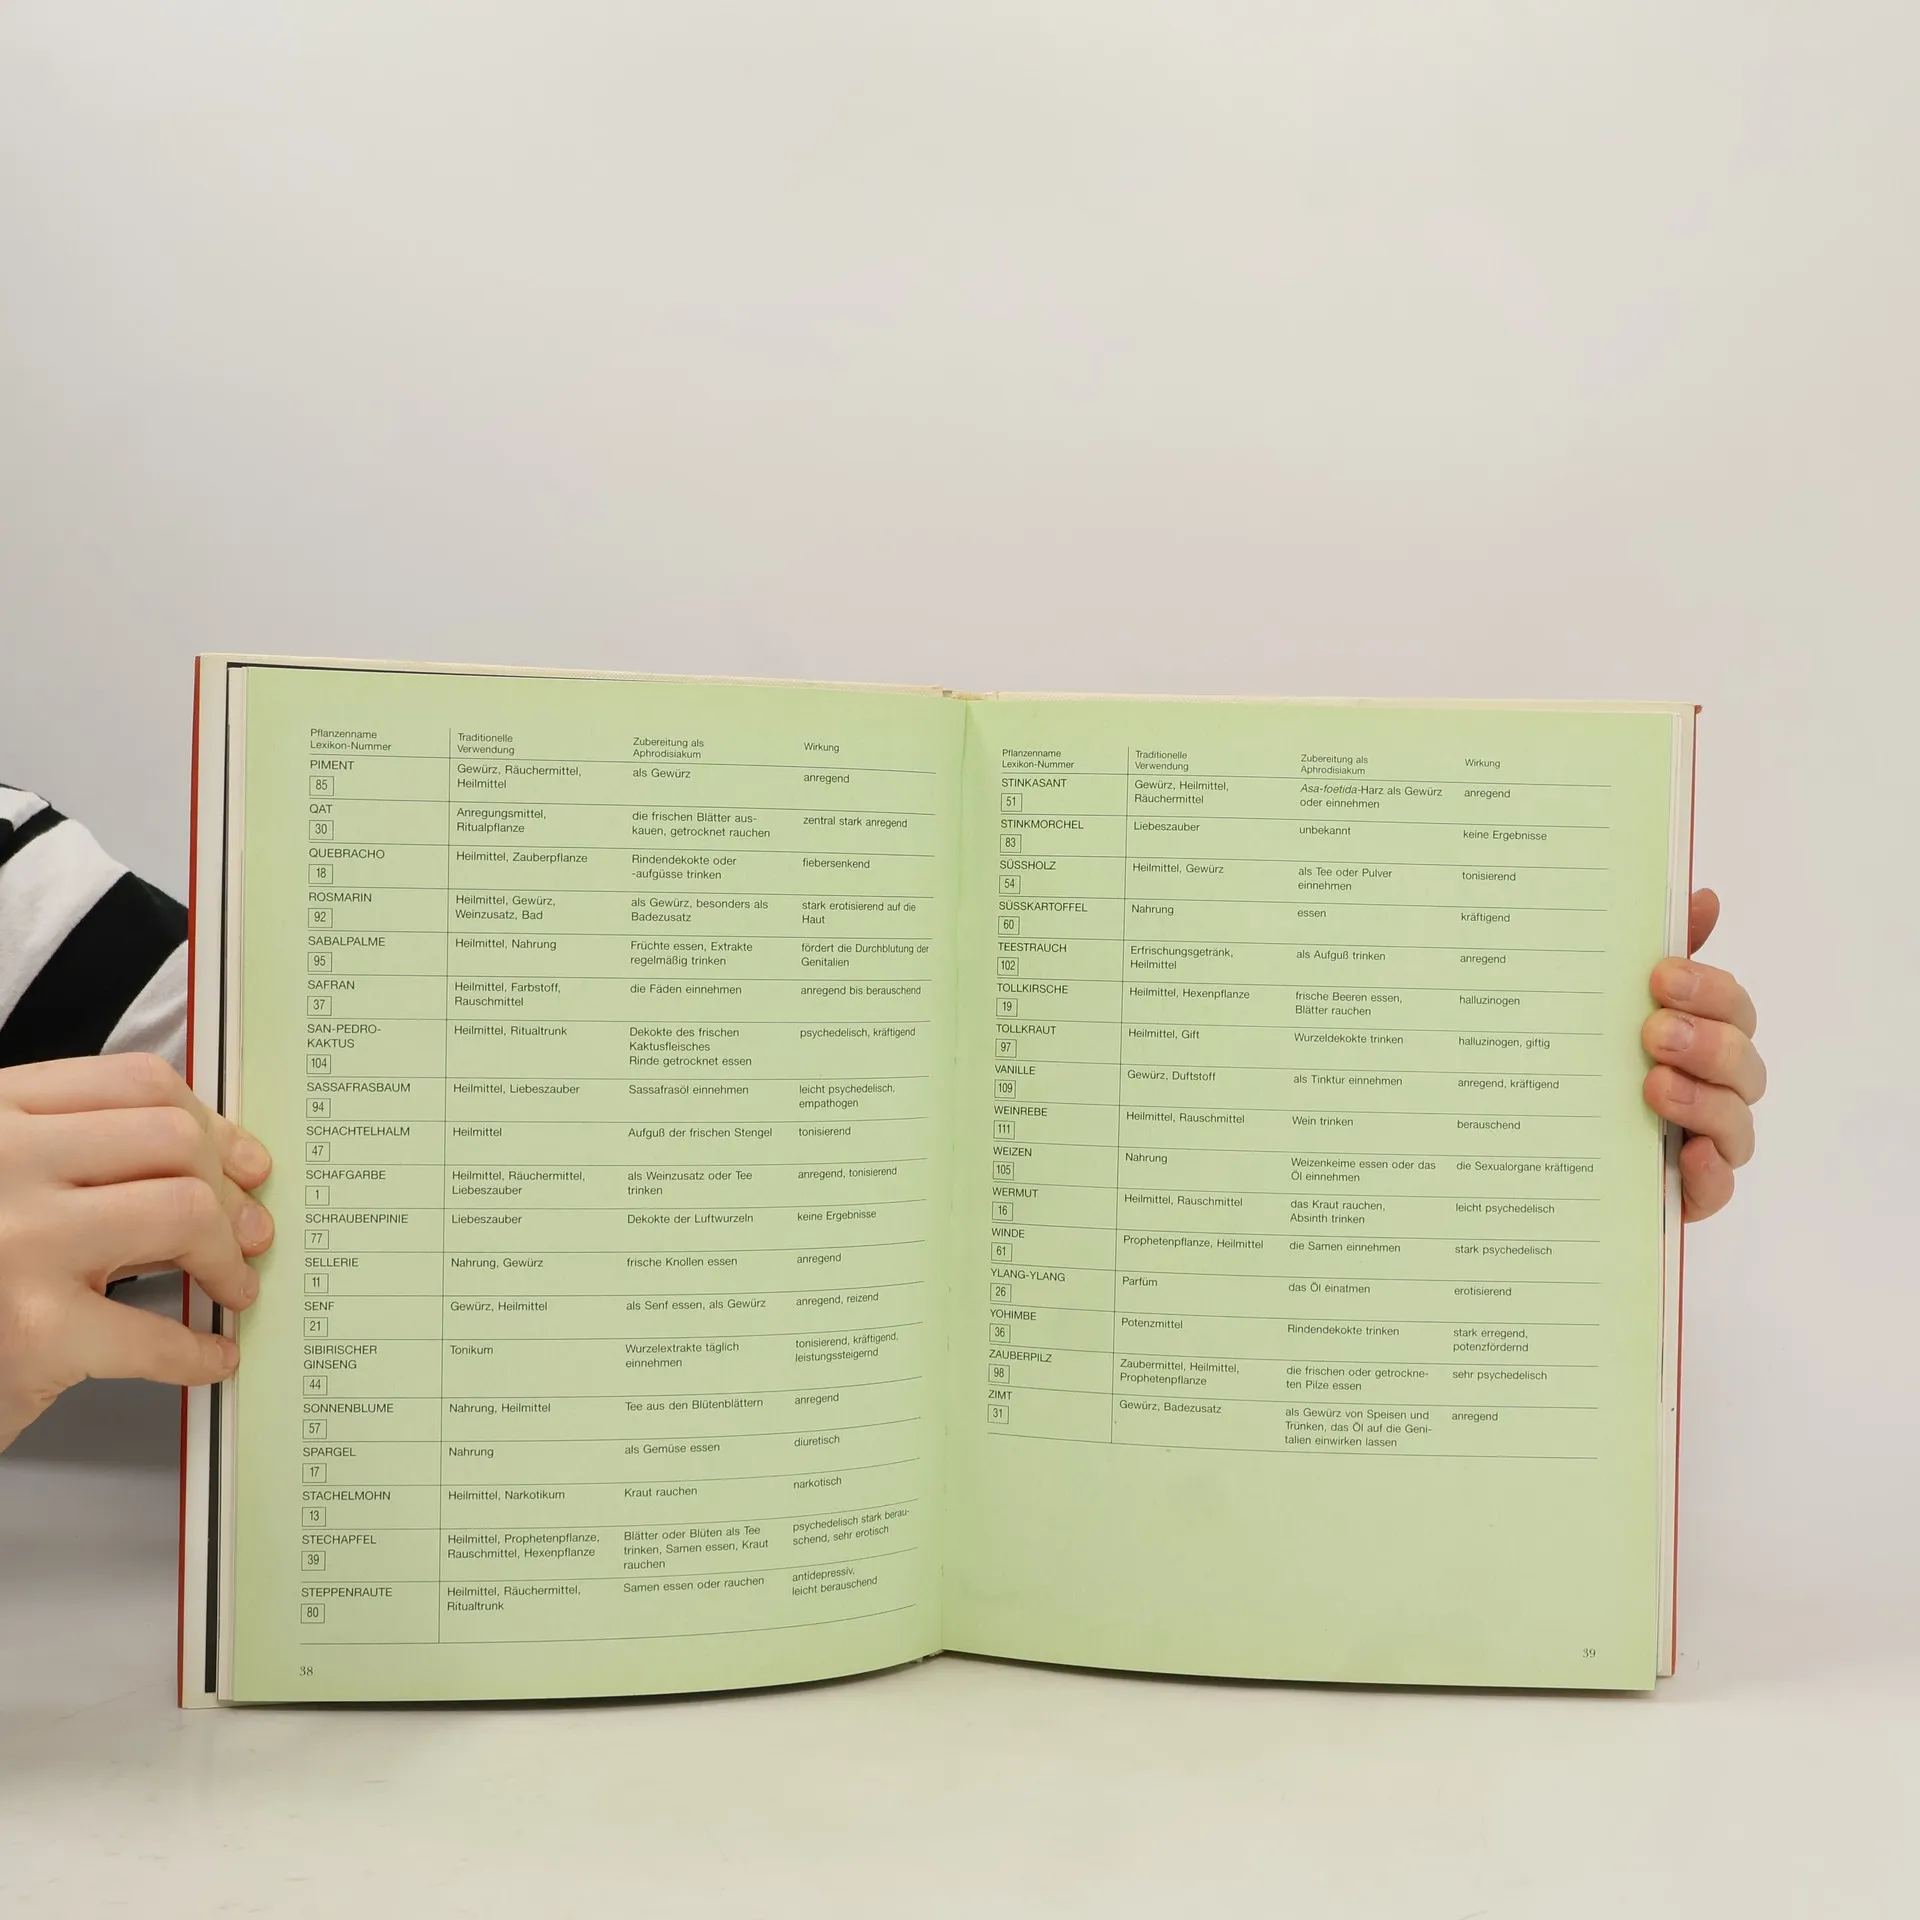 Pflanzenname
Lexikon-Nummer
Traditionelle
Verwendung
Zubereitung als
Aphrodisiakum
Wirkung
PIMENT
85
Gewürz, Räuchermittel,
Heilmittel
als Gewürz
anregend
QAT
30
Anregungsmittel,
Ritualpflanze
die frischen Blätter aus-
kauen, getrocknet rauchen
zentral stark anregend
QUEBRACHO
18
Heilmittel, Zauberpflanze
Rindendekokte oder
-aufgüsse trinken
fiebersenkend
ROSMARIN
92
Heilmittel, Gewürz,
Weinzusatz, Bad
als Gewürz, besonders als
Badezusatz
stark erotisierend auf die
Haut
SABALPALME
95
Heilmittel, Nahrung
Früchte essen, Extrakte
regelmäßig trinken
fördert die Durchblutung der
Genitalien
SAFRAN
37
Heilmittel, Farbstoff,
Rauschmittel
die Fäden einnehmen
anregend bis berauschend
SAN-PEDRO-
KAKTUS
104
Heilmittel, Ritualtrunk
Dekokte des frischen
Kaktusfleisches
Rinde getrocknet essen
psychedelisch, kräftigend
SASSAFRASBAUM
94
Heilmittel, Liebeszauber
Sassafrasöl einnehmen
leicht psychedelisch,
empathogen
SCHACHTELHALM
47
Heilmittel
Aufguß der frischen Stengel
tonisierend
SCHAFGARBE
1
Heilmittel, Räuchermittel,
Liebeszauber
als Weinzusatz oder Tee
trinken
anregend, tonisierend
SCHRAUBENPINIE
77
Liebeszauber
Dekokte der Luftwurzeln
keine Ergebnisse
SELLERIE
11
Nahrung, Gewürz
frische Knollen essen
anregend
SENF
21
Gewürz, Heilmittel
als Senf essen, als Gewürz
anregend, reizend
SIBIRISCHER
GINSENG
44
Tonikum
Wurzelextrakte täglich
einnehmen
tonisierend, kräftigend,
leistungssteigernd
SONNENBLUME
57
Nahrung, Heilmittel
Tee aus den Blütenblättern
anregend
SPARGEL
17
Nahrung
als Gemüse essen
diuretisch
STACHELMOHN
13
Heilmittel, Narkotikum
Kraut rauchen
narkotisch
STECHAPFEL
39
Heilmittel, Prophetenpflanze,
Rauschmittel, Hexenpflanze
Blätter oder Blüten als Tee
trinken, Samen essen, Kraut
rauchen
psychedelisch stark berau-
schend, sehr erotisch
STEPPENRAUTE
80
Heilmittel, Räuchermittel,
Ritualtrunk
Samen essen oder rauchen
antidepressiv,
leicht berauschend
38
Pflanzenname
Lexikon-Nummer
Traditionelle
Verwendung
Zubereitung als
Aphrodisiakum
Wirkung
STINKASANT
51
Gewürz, Heilmittel,
Räuchermittel
Asa-foetida-Harz als Gewürz
oder einnehmen
anregend
STINKMORCHEL
83
Liebeszauber
unbekannt
keine Ergebnisse
SÜSSHOLZ
54
Heilmittel, Gewürz
als Tee oder Pulver
einnehmen
tonisierend
SÜSSKARTOFFEL
60
Nahrung
essen
kräftigend
TEESTRAUCH
102
Erfrischungsgetränk,
Heilmittel
als Aufguß trinken
anregend
TOLLKIRSCHE
19
Heilmittel, Hexenpflanze
frische Beeren essen,
Blätter rauchen
halluzinogen
TOLLKRAUT
97
Heilmittel, Gift
Wurzeldekokte trinken
halluzinogen, giftig
VANILLE
109
Gewürz, Duftstoff
als Tinktur einnehmen
anregend, kräftigend
WEINREBE
111
Heilmittel, Rauschmittel
Wein trinken
berauschend
WEIZEN
105
Nahrung
Weizenkeime essen oder das
Öl einnehmen
die Sexualorgane kräftigend
WERMUT
16
Heilmittel, Rauschmittel
das Kraut rauchen,
Absinth trinken
leicht psychedelisch
WINDE
61
Prophetenpflanze, Heilmittel
die Samen einnehmen
stark psychedelisch
YLANG-YLANG
26
Parfüm
das Öl einatmen
erotisierend
YOHIMBE
36
Potenzmittel
Rindendekokte trinken
stark erregend,
potenzfördernd
ZAUBERPILZ
98
Zaubermittel, Heilmittel,
Prophetenpflanze
die frischen oder getrockne-
ten Pilze essen
sehr psychedelisch
ZIMT
31
Gewürz, Badezusatz
als Gewürz von Speisen und
Trünken, das Öl auf die Geni-
talien einwirken lassen
anregend
39